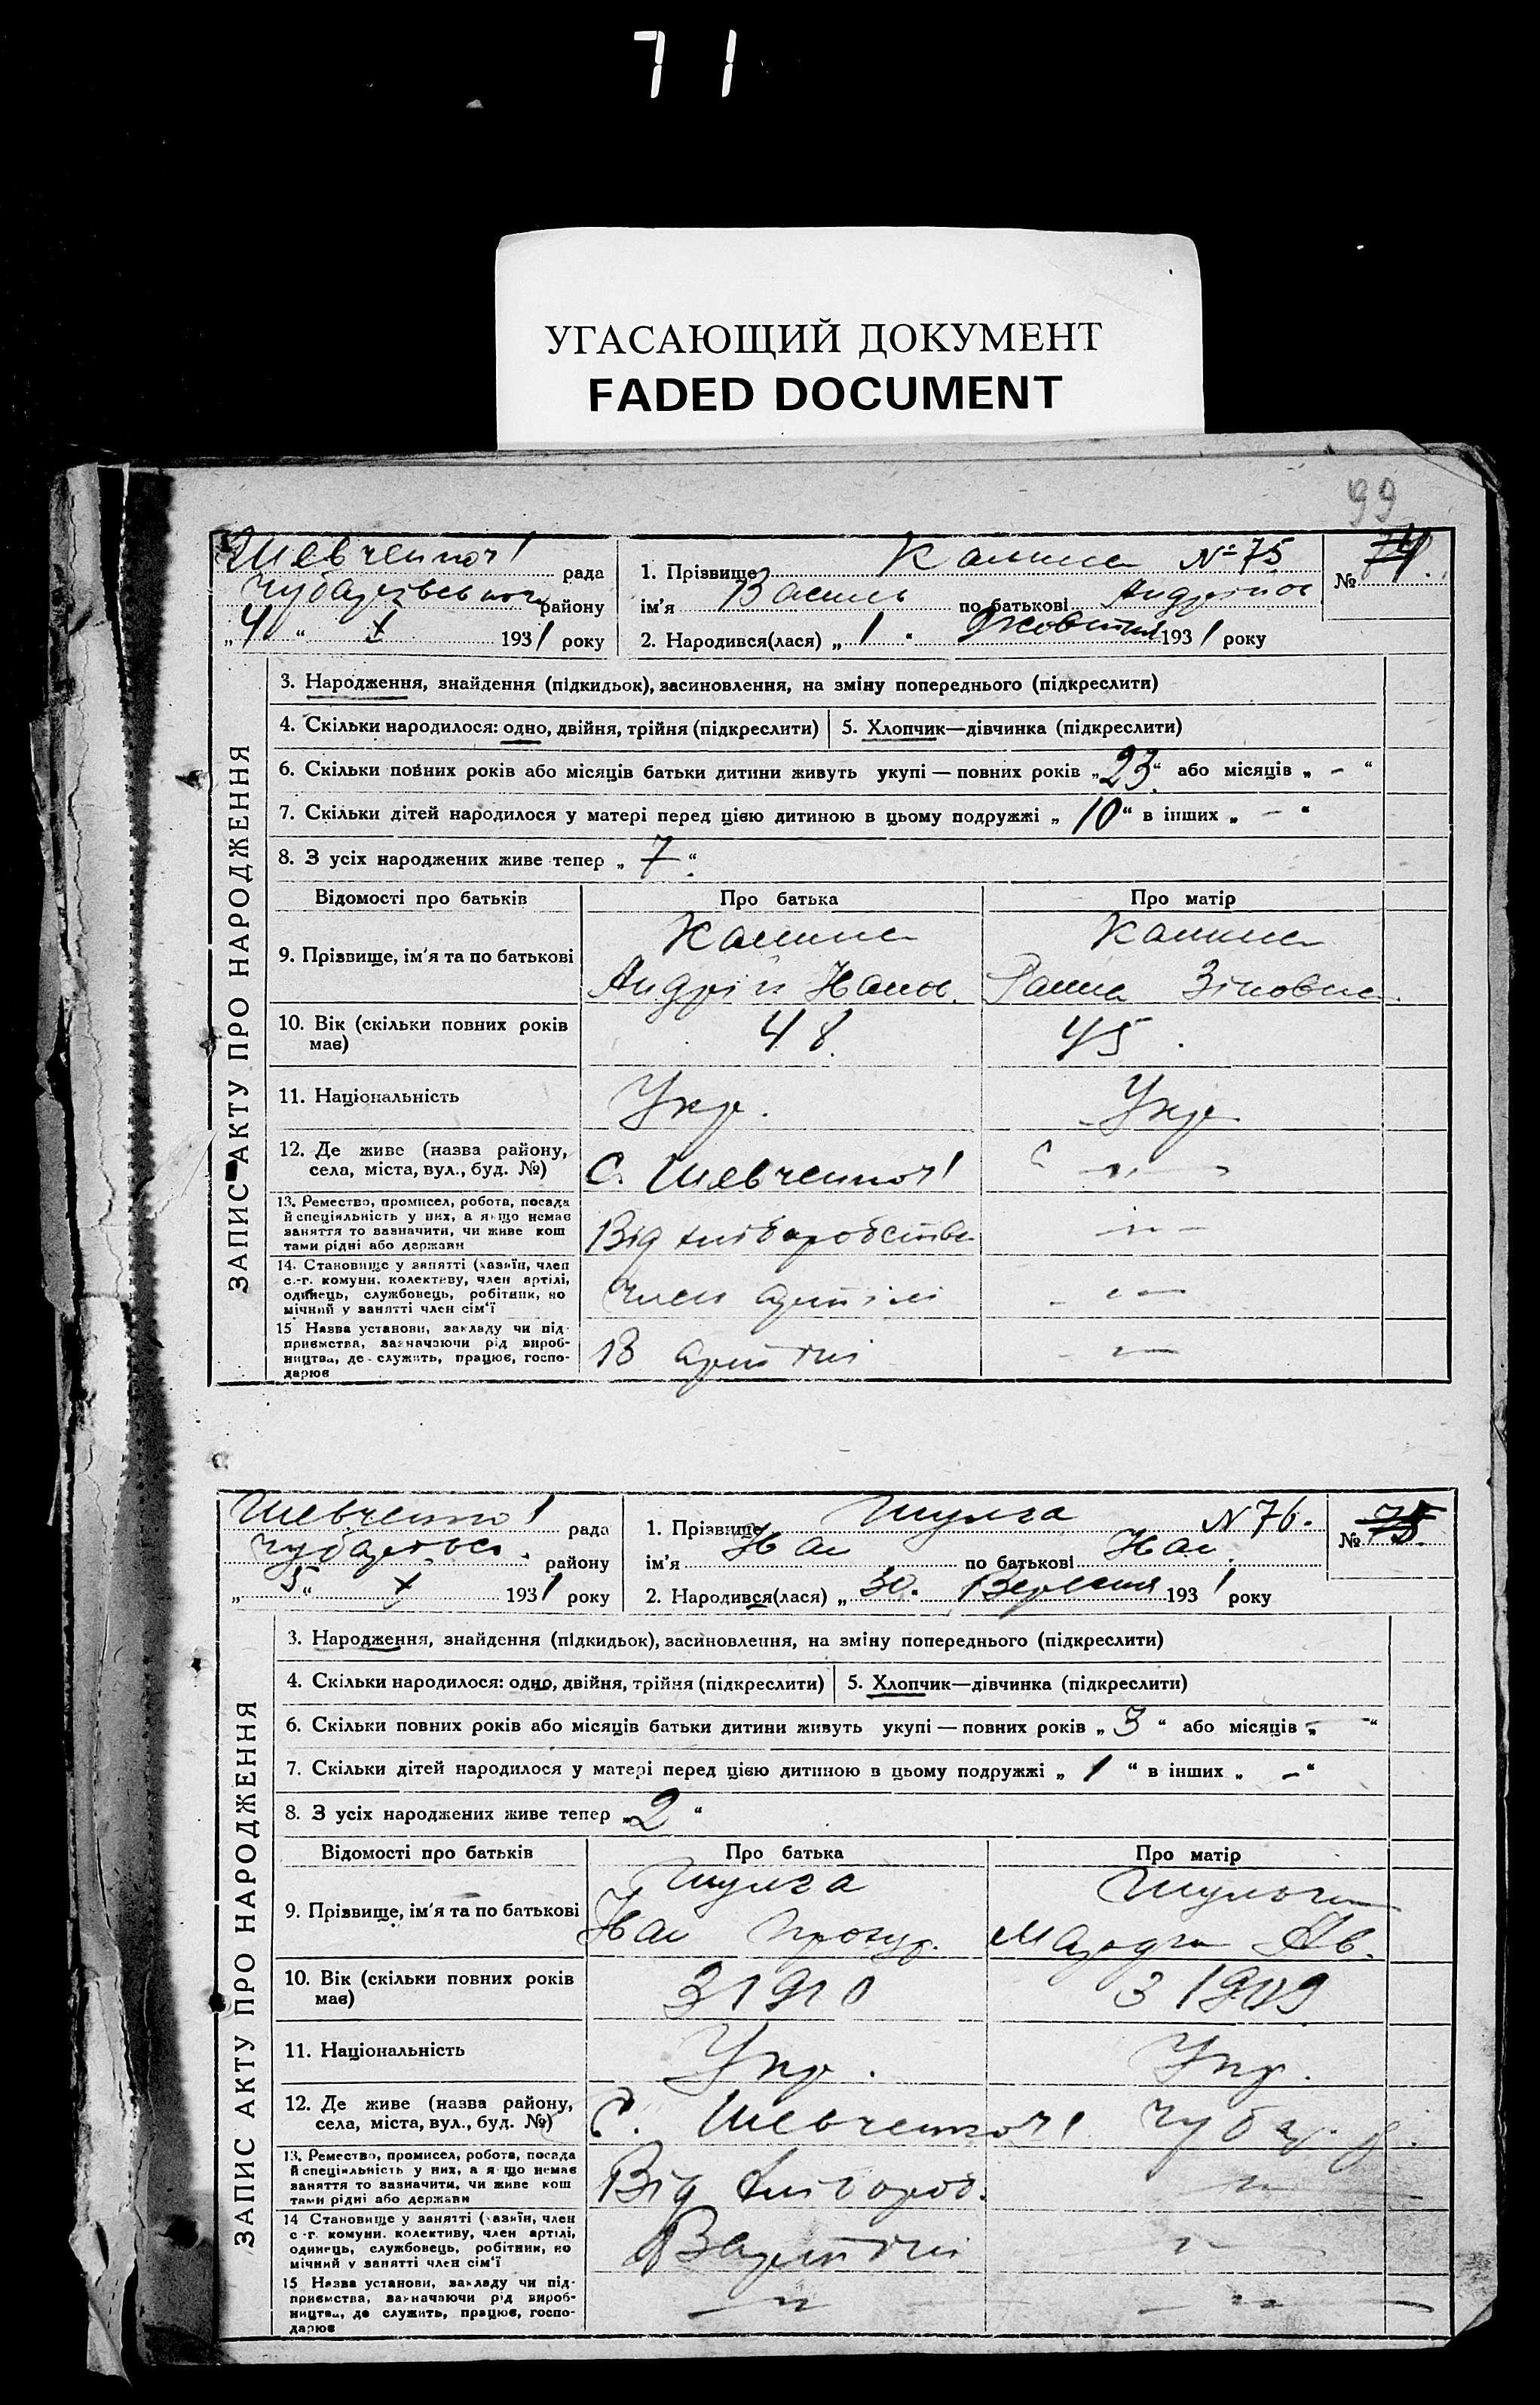 71
УГАСАЮЩИЙ ДОКУМЕНТ
FADED DOCUMENT
99
ЗАПИС АКТУ ПРО НАРОДЖЕННЯ
Шевченко 1 рада
району
„4“ X 1931 року
1. Прізвище №75
ім'я Василь по батькові
2. Народився(лася) „1“ Жовтня 1931 року
№ 74.
3. Народження, знайдення (підкидьок), засиновлення, на зміну попереднього (підкреслити)
4. Скільки народилося: одно, двійня, трійня (підкреслити) 5. Хлопчик—дівчинка (підкреслити)
6. Скільки повних років або місяців батьки дитини живуть укупі — повних років „23“ або місяців „ - “
7. Скільки дітей народилося у матері перед цією дитиною в цьому подружжі „10“ в інших „ - “
8. З усіх народжених живе тепер „7“
Відомості про батьків Про батька Про матір
9. Прізвище, ім'я та по батькові
Андрій Зіновна
10. Вік (скільки повних років має) 48. 45.
11. Національність Укр. Укр
12. Де живе (назва району, села, міста, вул., буд. №) С. Шевченко 1 С -"-
13. Ремество, промисел, робота, посада й спеціяльність у них, а якщо немає заняття то зазначити, чи живе коштами рідні або держави Від хліборобства -"-
14. Становище у занятті (хазяїн, член с.-г. комуни, колективу, член артілі, одинець, службовець, робітник, помічний у занятті член сім'ї член артілі -"-
15 Назва установи, закладу чи підприємства, зазначаючи рід виробництва, де служить, працює, господарює В артілі -"-
ЗАПИС АКТУ ПРО НАРОДЖЕННЯ
Шевченко 1 рада
району
„5“ X 1931 року
1. Прізвище Шулга N 76.
ім'я по батькові
2. Народився(лася) „30.“ Вересня 1931 року
№ 75.
3. Народження, знайдення (підкидьок), засиновлення, на зміну попереднього (підкреслити)
4. Скільки народилося: одно, двійня, трійня (підкреслити) 5. Хлопчик—дівчинка (підкреслити)
6. Скільки повних років або місяців батьки дитини живуть укупі — повних років „3“ або місяців „ - “
7. Скільки дітей народилося у матері перед цією дитиною в цьому подружжі „1“ в інших „ - “
8. З усіх народжених живе тепер „2“
Відомості про батьків Про батька Про матір
Шулга
9. Прізвище, ім'я та по батькові
10. Вік (скільки повних років має) З 1910 З 1909
11. Національність Укр. Укр.
12. Де живе (назва району, села, міста, вул., буд. №) С. Шевченко 1 Чубар. р.
13. Ремество, промисел, робота, посада й спеціяльність у них, а якщо немає заняття то зазначити, чи живе коштами рідні або держави Від хлібороб. -"-
14 Становище у занятті (хазяїн, член с.-г. комуни, колективу, член артілі, одинець, службовець, робітник, помічний у занятті член сім'ї В артілі -"-
15 Назва установи, закладу чи підприємства, зазначаючи рід виробництва, де служить, працює, господарює -"- -"-